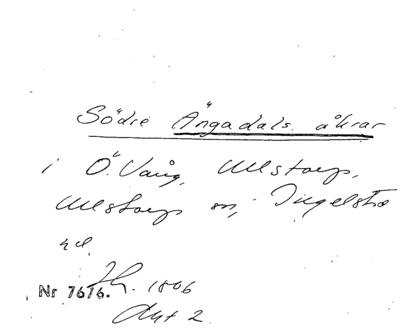 Södre Ängadals åkrar
i Ö. Vång, Ullstorp,
Ullstorps sn, Ingelsta
hd.
Nr 7676. 1806
Akt 2